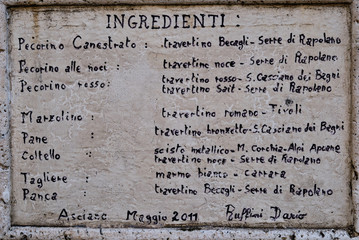 INGREDIENTI :
Pecorino Canestrato : travertino Becagli - Serre di Rapolano
Pecorino alle noci : travertino noce - Serre di Rapolano
Pecorino rosso : travertino rosso - S. Casciano dei Bagni
travertino Sait - Serre di Rapolano
Marzolino : travertino romano - Tivoli
Pane : travertino bronzetto - S. Casciano dei Bagni
Coltello : scisto metallico - M. Corchia - Alpi Apuane
travertino noce - Serre di Rapolano
Tagliere : marmo bianco - Carrara
Panca : travertino Becagli - Serre di Rapolano
Asciano Maggio 2011 Ruffini Dario